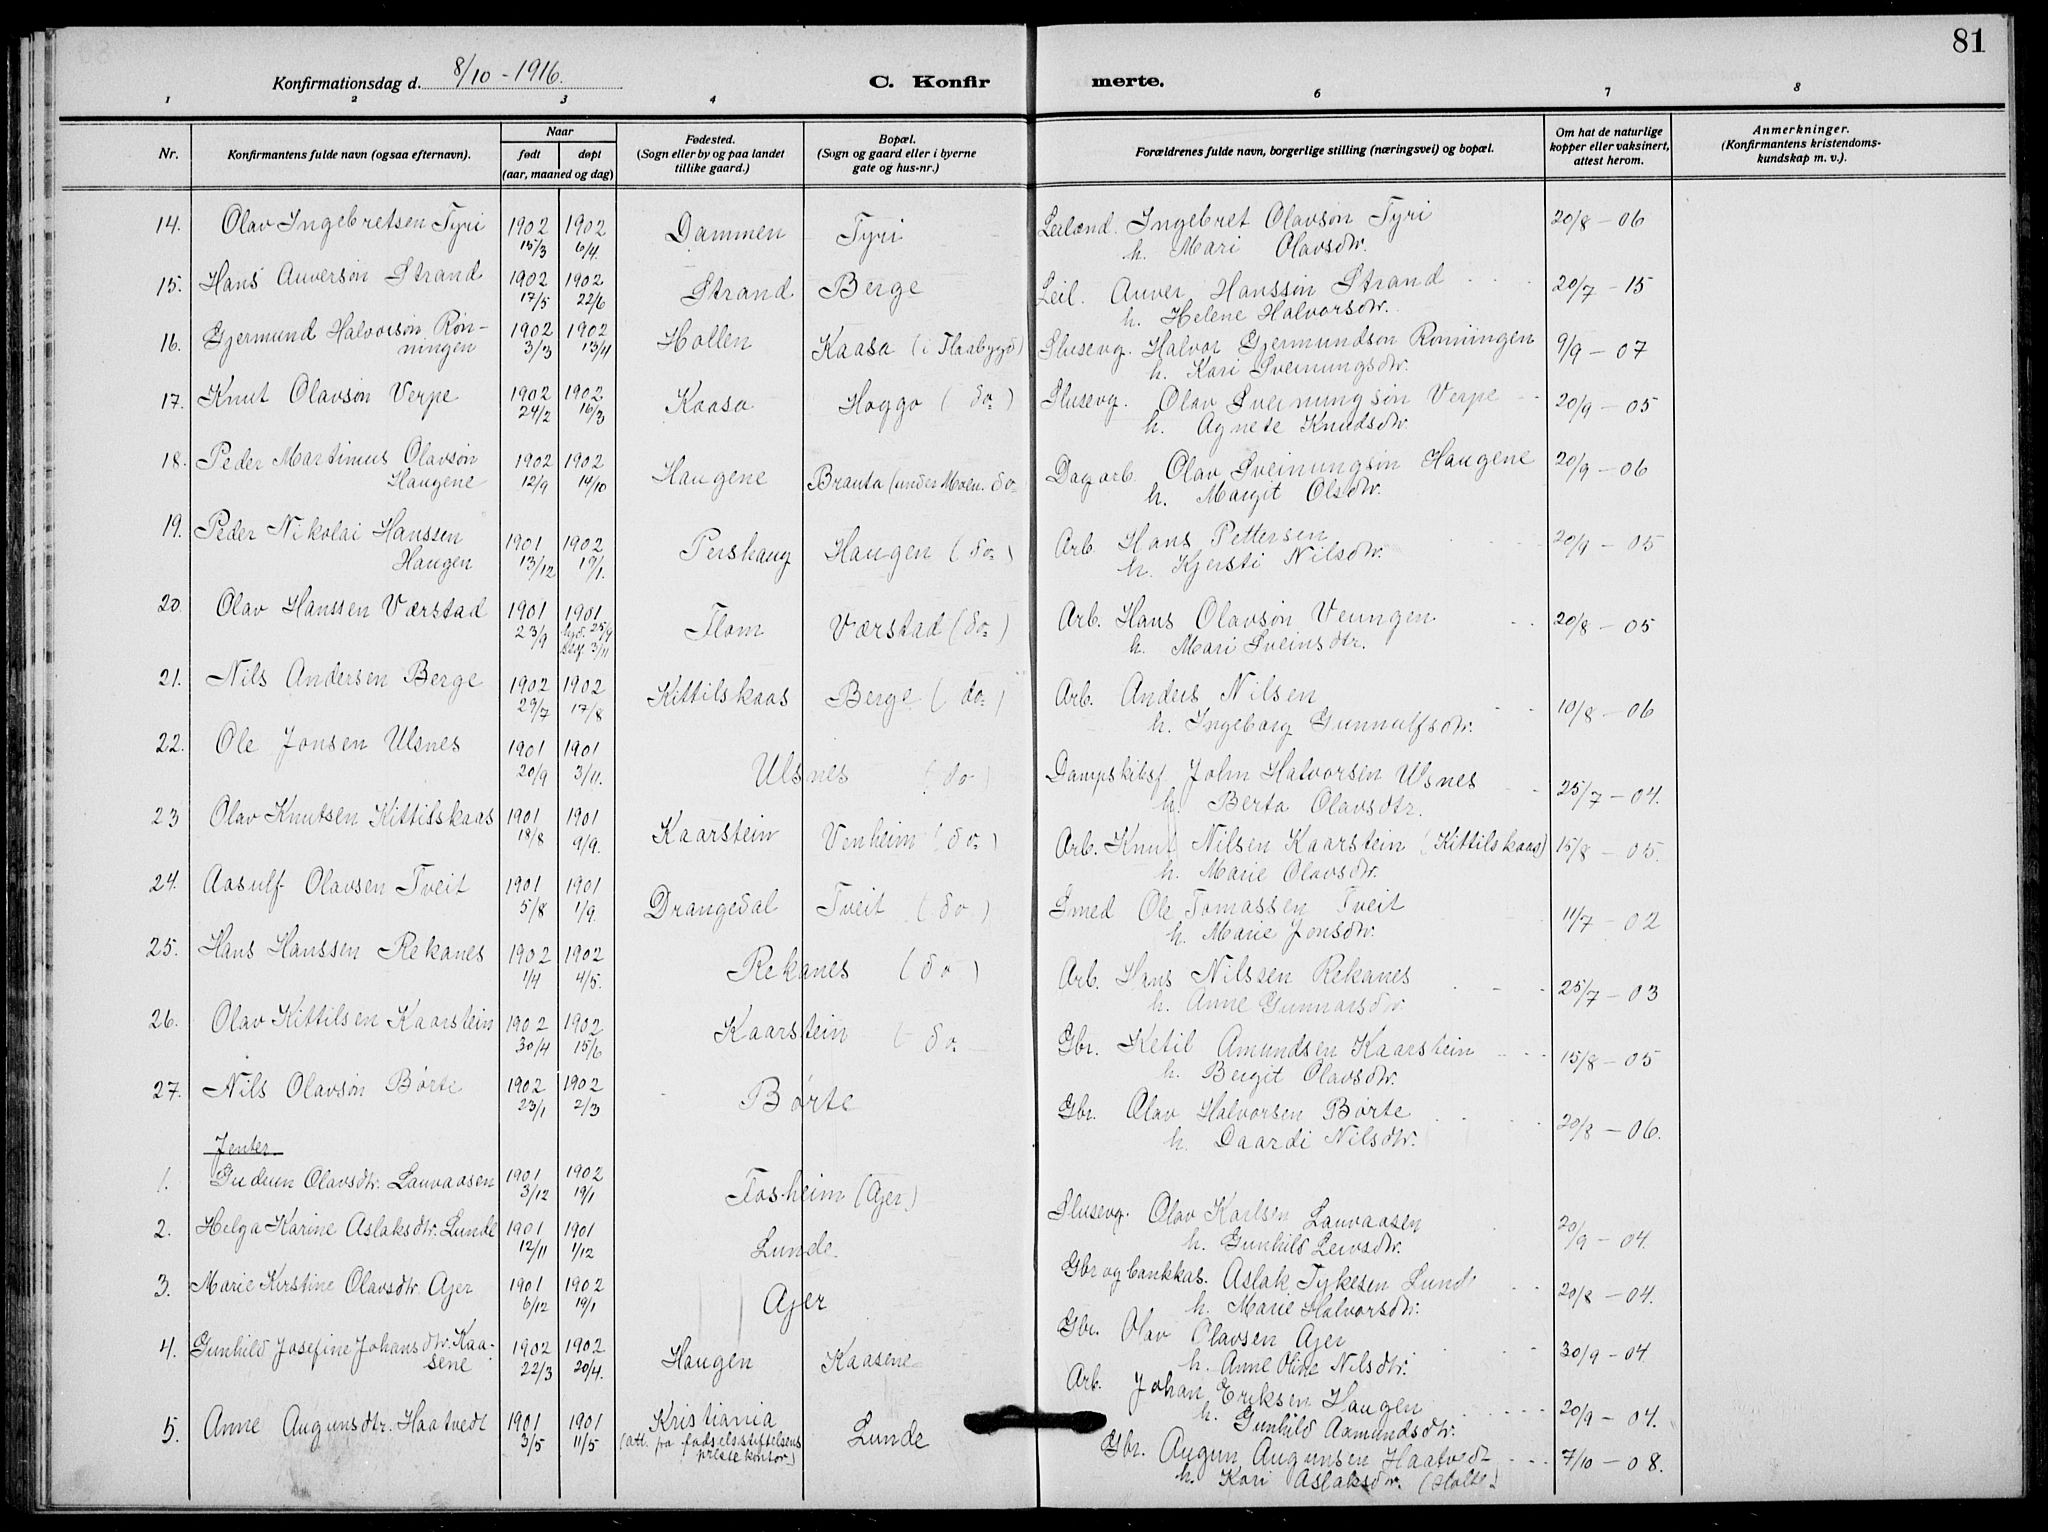 81
Konfirmationsdag d. 8/10 - 1916.
C. Konfir merte.
1 2 3 4 6 7 8
Nr.
Konfirmantens fulde navn (ogsaa efternavn).
Naar
født døpt
(aar, maaned og dag)
Fødested.
(Sogn eller by og paa landet
tillike gaard.)
Bopæl.
(Sogn og gaard eller i byerne
gate og hus-nr.)
Forældrenes fulde navn, borgerlige stilling (næringsvei) og bopæl.
Om hat de naturlige
kopper eller vaksinert,
attest herom.
Anmerkninger.
(Konfirmantens kristendoms-
kundskap m. v.).
14. Olav Ingebretsen Tyri 1902 1902 Dammen Tyri Leilænd. Ingebret Olavsøn Tyri 20/8 - 06
15/3 6/4. h. Mari Olavsdtr.
15. Hans Auversøn Strand 1902 1902 Strand Berge Leil. Auver Hanssøn Strand 20/7 - 15
17/5 22/6 h. Helene Halvorsdtr.
16. Gjermund Halvorsøn Røn- 1902 1902 Hollen Kaasa (i Flaabygd) Slusevg. Halvor Gjermundsøn Rønningen 9/9 - 07
ningen 3/3 13/4 h. Kari Sveinungsdtr.
17. Knut Olavsøn Verpe 1902 1902 Kaasa Hogga (do=) Slusevg. Olav Sveinungsøn Verpe 20/9 - 05
24/2 16/3 h. Agnete Knudsdtr.
18. Peder Martinius Olavsøn 1902 1902 Haugene Branta (under Moen. do= Dagarb. Olav Sveinungsøn Haugene 20/9 - 06
Haugene 12/9 14/10 h. Margit Olsdtr.
19. Peder Nikolai Hanssen 1901 1902 Pershaug Haugen (do=) Arb. Hans Pettersen 20/9 - 05
Haugen 13/12 19/1. h. Kjersti Nilsdtr.
20. Olav Hanssen Værstad 1901 1901 Flom Værstad (do=) Arb. Hans Olavsøn Veungen 20/8 - 05
23/9 hjd. 25/9 h. Mari Sveinsdtr.
3/11
21. Nils Andersen Berge 1902 1902 Kittilskaas Berge (do=) Arb. Anders Nilsen 10/8 - 06
29/7 17/8 h. Ingeborg Gunnulfsdtr.
22. Ole Jonsen Ulsnes 1901 1901 Ulsnes (do) Dampskibsf. John Halvorsen Ulsnes 25/7 - 04.
20/9 3/11. h. Berta Olavsdtr.
23 Olav Knutsen Kittilskaas 1901 1901 Kaarstein Venheim (do=) Arb. Knut Nilsen Kaarstein (Kittilskaas) 15/8 - 05.
18/8 9/9. h. Marie Olavsdtr.
24. Aasulf Olavsen Tveit 1901 1901 Drangedal Tveit (do) Smed Ole Tomassen Tveit 11/7 - 02
5/8 1/9. h. Marie Jonsdtr.
25. Hans Hanssen Rekanes 1902 1902 Rekanes (do) Arb. Hans Nilssen Rekanes 25/7 - 03
1/4 4/5. h. Anne Gunnarsdtr.
26. Olav Kittilsen Kaarstein 1902 1902 Kaarstein - do. Gbr. Ketil Amundsen Kaarstein 15/8 - 05
30/4 15/6 h. Bergit Olavsdtr.
27. Nils Olavsøn Børte 1902 1902 Børte Gbr. Olav Halvorsen Børte 20/8 - 06.
23/1 2/3 h. Daardi Nilsdtr.
Jenter.
1. Gudrun Olavsdtr. Lauvaasen 1901 1902 Fosheim (Ajer.) Slusevg. Olav Karlsen Lauvaasen 20/9 - 04.
3/12 19/1 h. Gunhild Leivsdtr.
2. Helga Karine Aslaksdtr. Lunde 1901 1901 Lunde. Gbr og bankkas. Aslak Tykesen Lunde 20/8 - 04.
12/11 1/12 h. Marie Halvorsdtr.
3. Marie Kirstine Olavsdtr. Ajer 1901 1902 Ajer Gbr. Olav Olavsen Ajer 30/9 - 04.
6/12 19/1 h. Anne Oline Nilsdtr.
4. Gunhild Josefine Johansdtr. Kaa- 1902 1902 Haugen Kaasene Arb. Johan Eriksen Haugen 20/9 - 04.
sene 22/3 20/4. h. Gunhild Aamundsdtr.
5. Anne Augunsdtr. Haatvedt 1901 1901 Kristiania Lunde Gbr. Augun Augunsen Haatvedt 7/10 - 08.
3/5 11/5 (att. fra fødselsstiftelsens h. Kari Aslaksdtr. (Holte)
prestekontor)